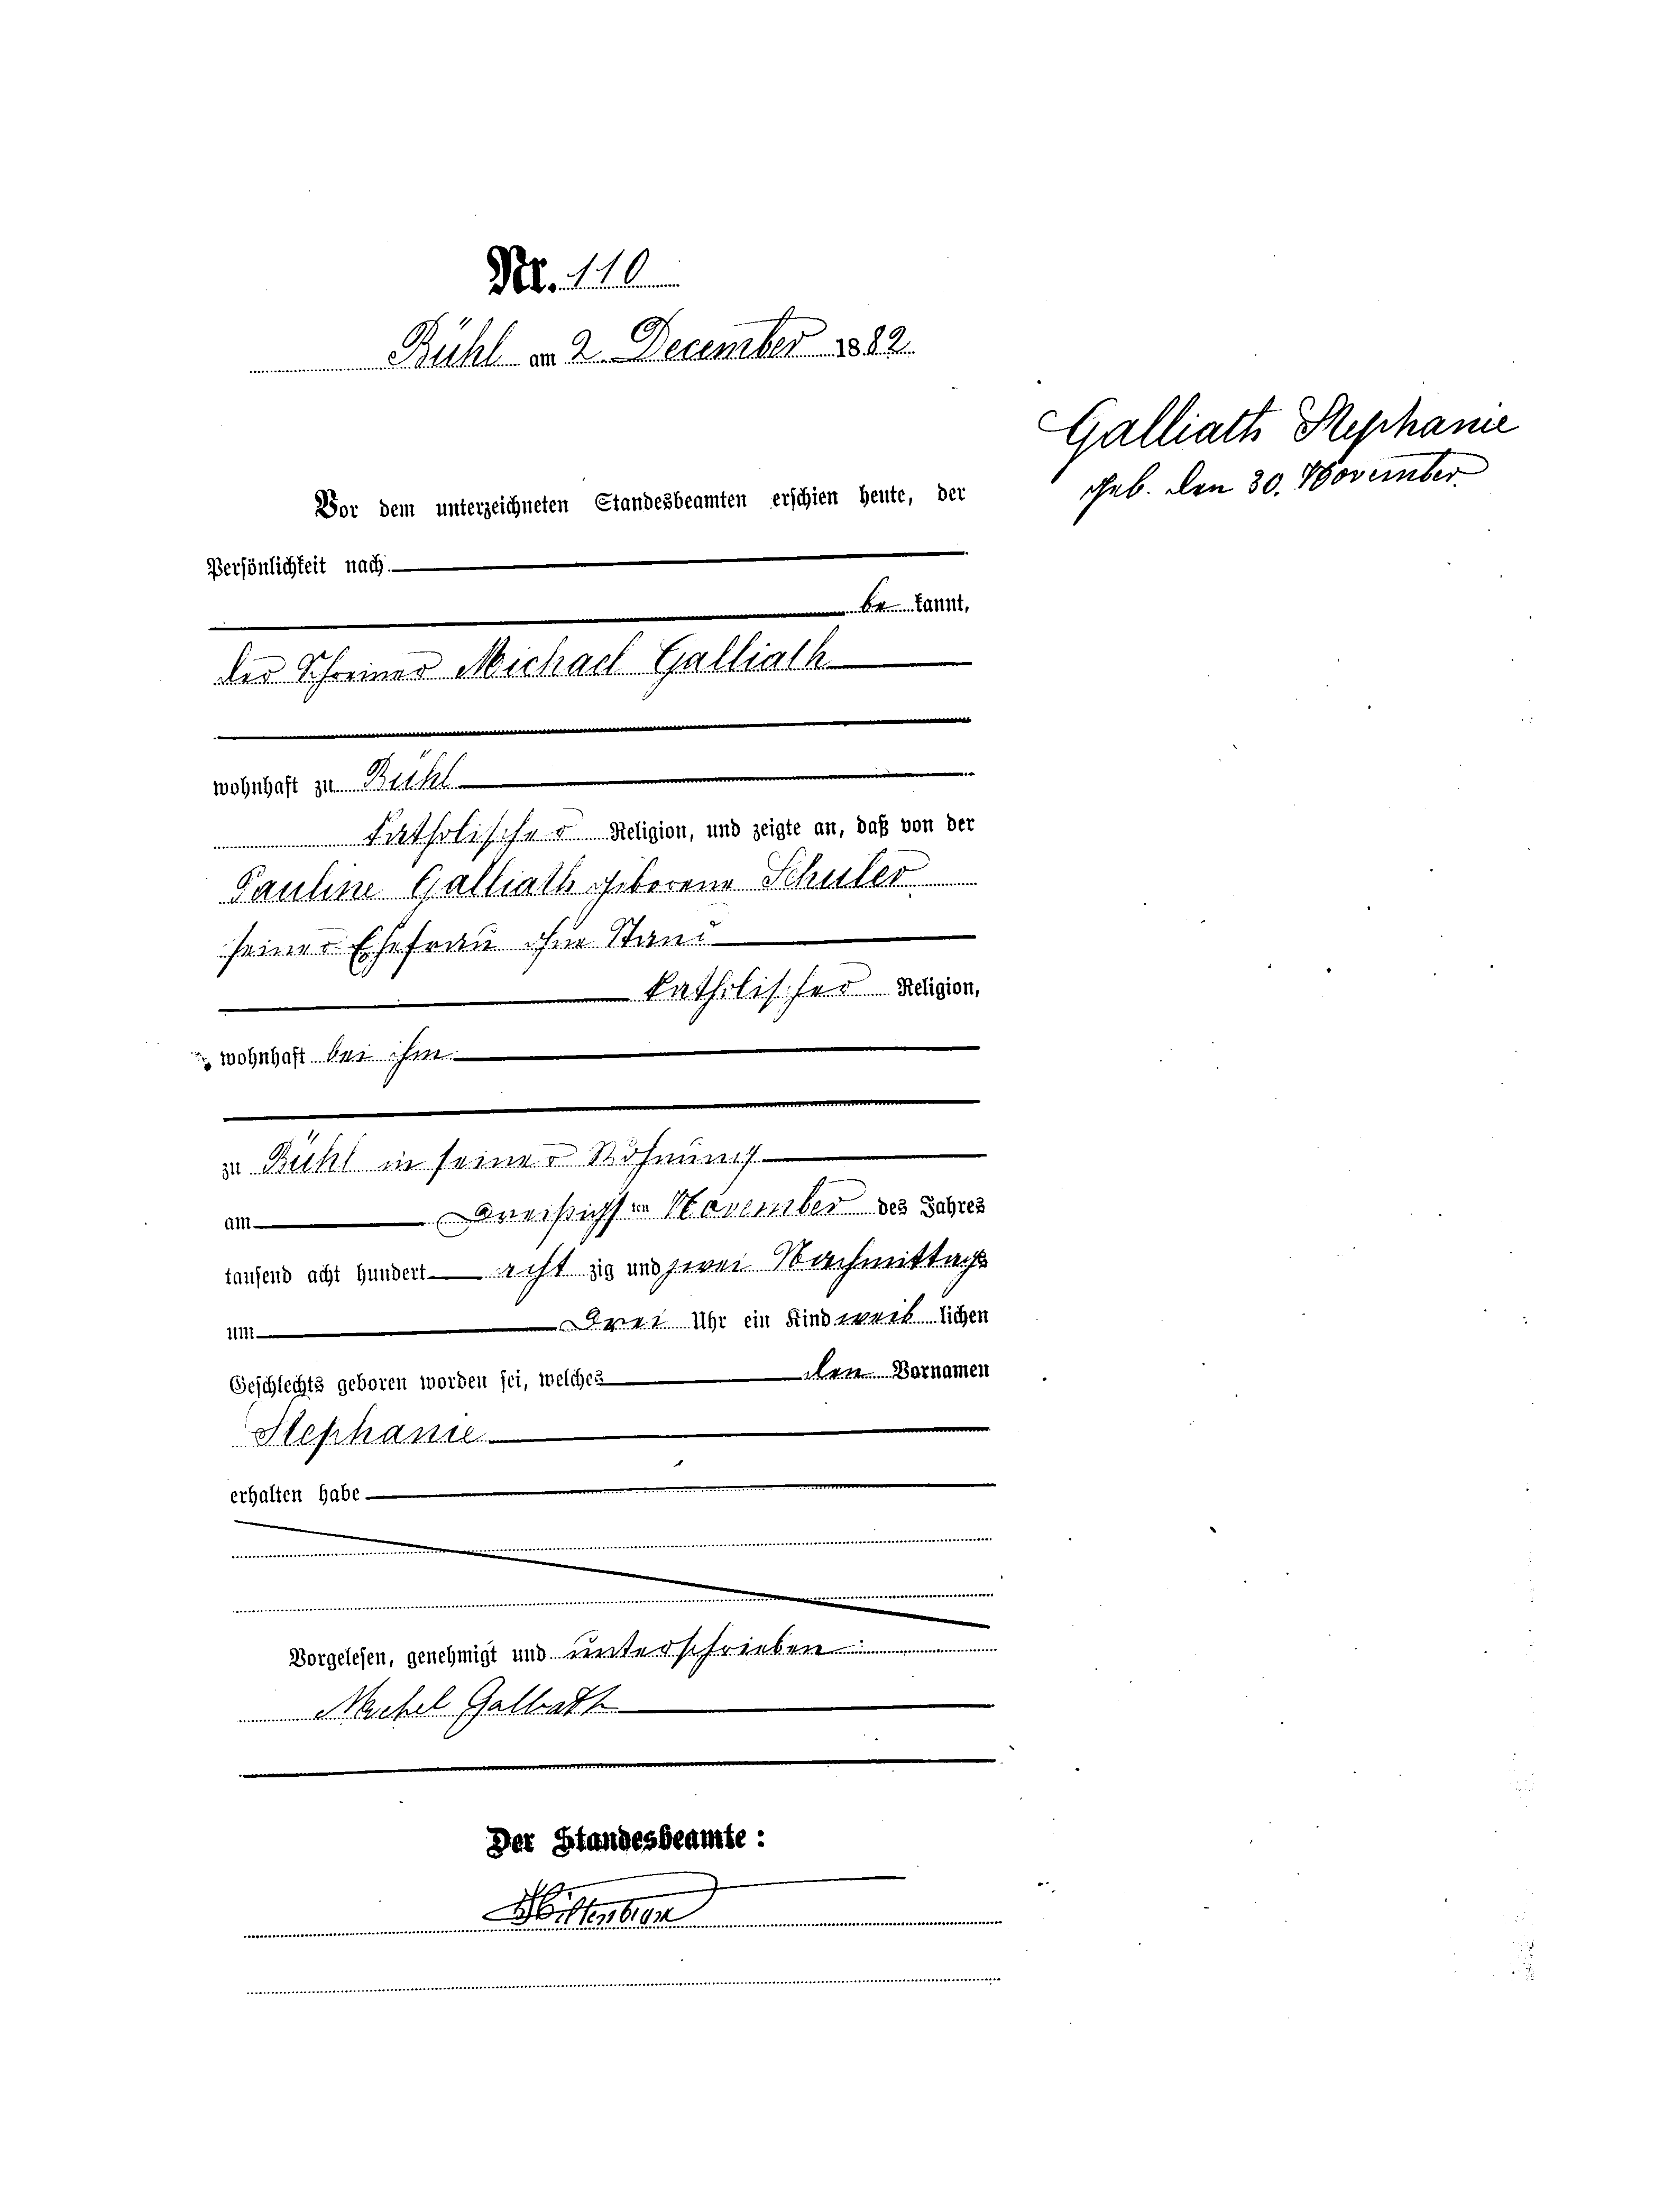 Nr. 110
Bühl am 2. December 1882
Galliath Stephanie
geb. den 30. November.
Vor dem unterzeichneten Standesbeamten erschien heute, der
Persönlichkeit nach
be kannt,
der Schreiner Michael Galliath
wohnhaft zu Bühl
katholischer Religion, und zeigte an, daß von der
Pauline Galliath geborene Schuler
seiner Ehefrau ohne Stand
katholischer Religion,
wohnhaft bei ihm
zu Bühl in seiner Wohnung
am Dreißigsten November des Jahres
tausend acht hundert acht zig und zwei Nachmittags
um Drei Uhr ein Kind weib lichen
Geschlechts geboren worden sei, welches den Vornamen
Stephanie
erhalten habe
Vorgelesen, genehmigt und unterschrieben:
Michel Galliath
Der Standesbeamte: